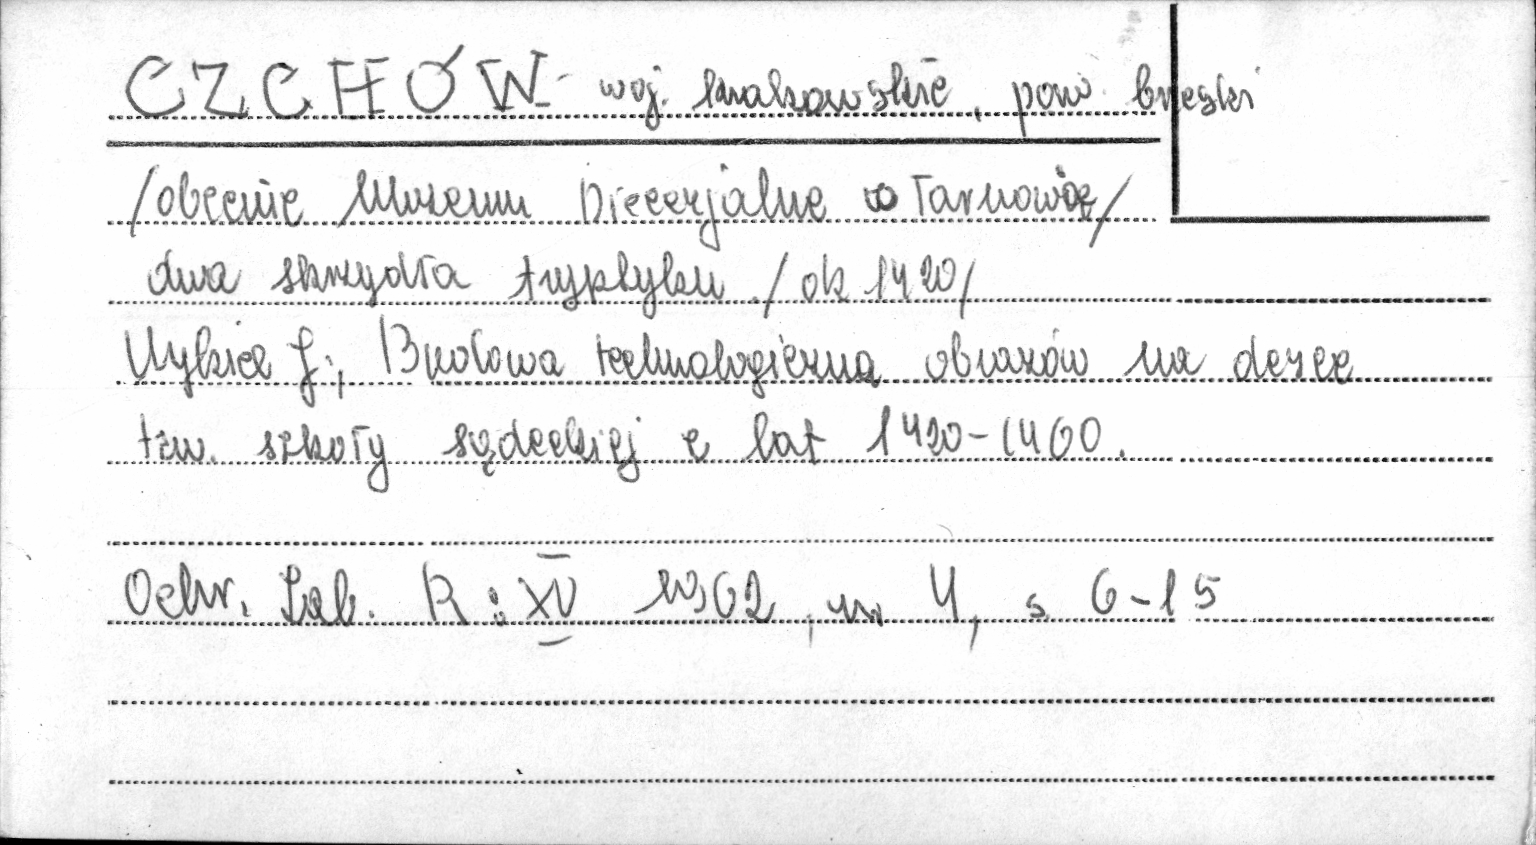 CZCHÓW - woj. krakowskie, pow. brzeski
/obecnie Muzeum Diecezjalne w Tarnowie/
dwa skrzydła tryptyku /ok 1420/
J.; Budowa technologiczna obrazów na desce
tzw. szkoły sądeckiej z lat 1420-1460.
Ochr. Zab. R: XV 1962, nr 4, s 6-15